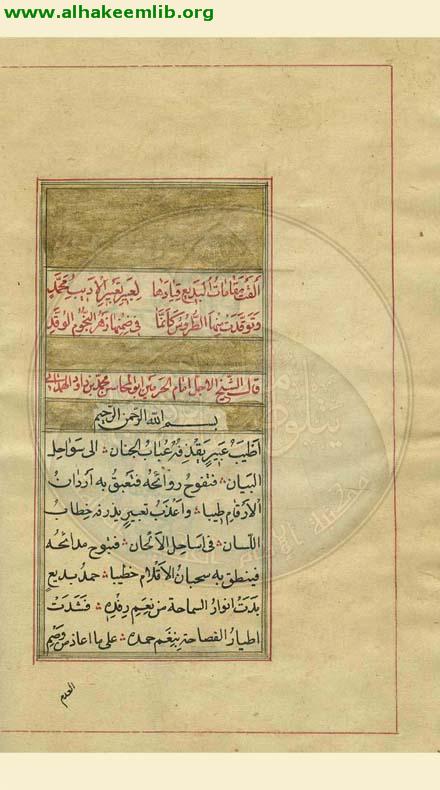 www.alhakeemlib.org
ألقت مقامات البديع قيادها لعبير تعبير الأديب محمد
وتوقدت بين الطروس كأنما في ضمنها زهر النجوم الوقد
قال الشيخ الاجل امام الحرمين ابو المحاسن محمد بن داود الهمداني
بسم الله الرحمن الرحيم
أطيب عبير يقذفه عباب الجنان الى سواحل
البيان فتفوح روائحه فتعبق به أردان
الأرقام طيبا وأعذب تعبير يذرفه خطاب
اللسان في اساحل الألحان فتبوح مدائحه
فينطق به سحبان الأقلام خطيبا حمد بديع
بدت انوار السماحة من نعيم رفده فشدت
اطيار الفصاحة بنغم حمده على ما اعاذ من وصم
العدم